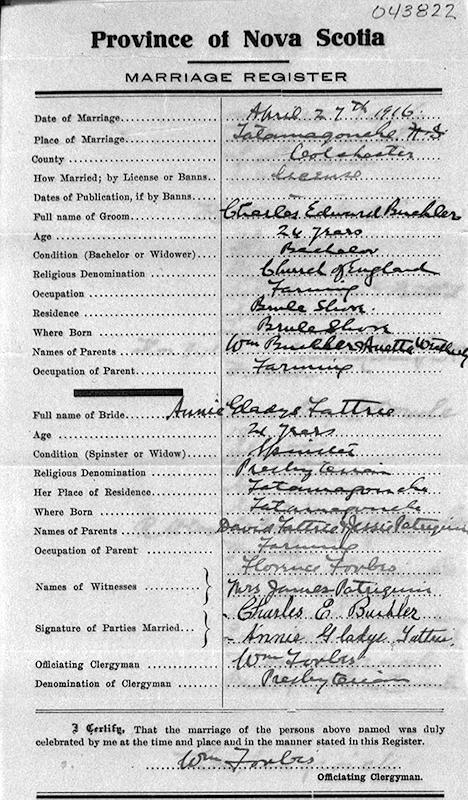 043822
Province of Nova Scotia
MARRIAGE REGISTER
Date of Marriage April 27th 1916
Place of Marriage Tatamagouche N.S
County Colchester
How Married; by License or Banns License
Dates of Publication, if by Banns –
Full name of Groom Charles Edward Buckler
Age 24 years
Condition (Bachelor or Widower) Bachelor
Religious Denomination Church of England
Occupation Farming
Residence Brule Shore
Where Born Brule Shore
Names of Parents Wm Buckler
Occupation of Parent Farming
Full name of Bride Annie Gladys Tattrie
Age 24 years
Condition (Spinster or Widow) Spinster
Religious Denomination Presbyterian
Her Place of Residence Tatamagouche
Where Born Tatamagouche
Names of Parents David Tattrie Jessie Patriquin
Occupation of Parent Farming
Florence Forbes
Names of Witnesses Mrs James Patriquin
Charles E. Buckler
Signature of Parties Married
Annie Gladys Tattrie
Officiating Clergyman Wm Forbes
Denomination of Clergyman Presbyterian
I Certify, That the marriage of the persons above named was duly
celebrated by me at the time and place and in the manner stated in this Register.
Wm Forbes
Officiating Clergyman.